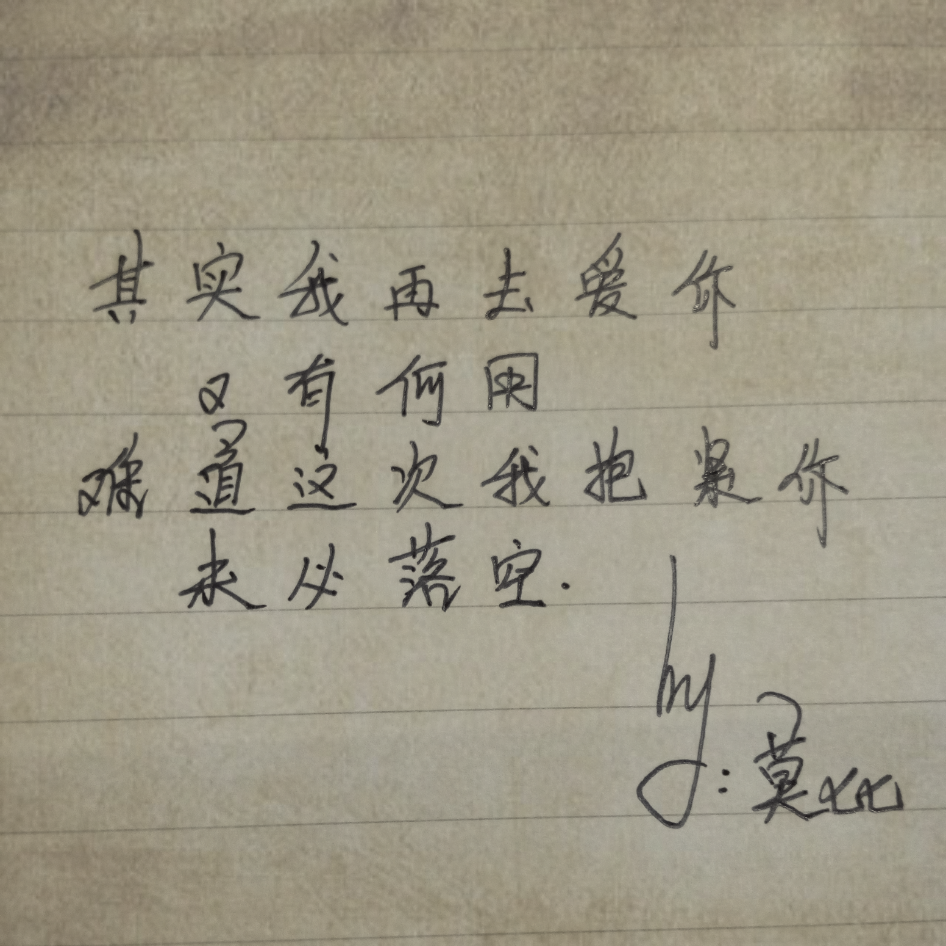 其实我再去爱你
又有何用
难道这次我抱紧你
未必落空.
by:莫